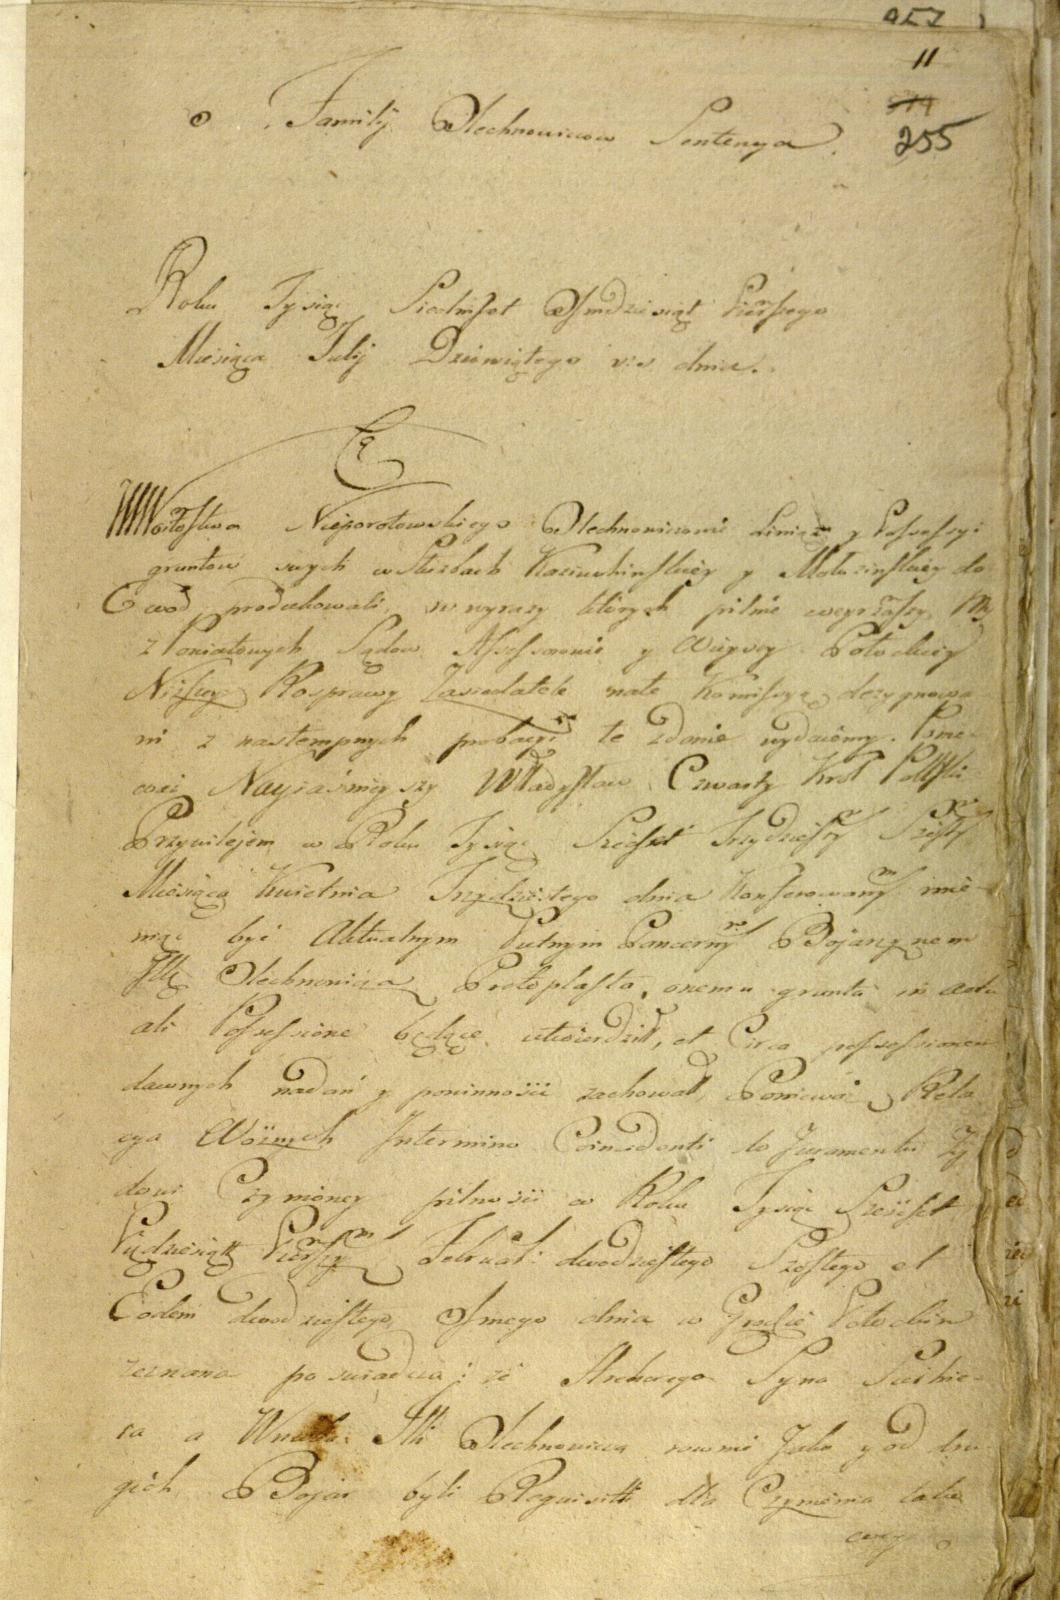 11
255
o Familij Olechnowiczow Sentencya.
Roku Tysiąc Siedmset Osmdziesiąt Pierszego
Miesiąca Julij Dziewiątego dnia.
Niezorotowskiego Olechnowiczowie y Possessyi
gruntow swych w Służbach y do
Cwod produkowali, w wyrazy których pilnie weyrzawszy, My
z Poniatowych Sądow Assessorowie y Wieyscy Połockiey
Niższey Rosprawy Zasiedatele na te Komissyą dezygnowa
ni z nastempnych probacyi te zdanie wydaiemy. Ponie-
waż Nayiaśnieyszy Władysław Czwarty Krol Polski
Przywilejem w Roku Tysiąc Sześćset Trzydziestym Szóstym
Miesiąca Kwietnia Trzydziestego dnia Konferowanym mie-
niąc być Aktualnym Putnym Pancernym Bojarzynem
Illę Olechnowicza Protoplastę, onemu grunta in actu
ali Possessione będące utwierdził, et Circa possessionem
dawnych nadań y powinności zachował, Poniewaz Rela
cya Woźnych Intermino Coincidenti do Juramentu Ży
dowi Czynioney pilności w Roku Tysiąc Sześćset
Piędziesiątt Pierszym Februar: dwudziestego Szostego et
Eodem dwudziestego Osmego dnia w Grodzie Połockim
zeznana poswiadcza: że Syna
ra a Wnuka Illi Olechnowicza rownie Jako y od dru
gich Bojar byli Requisitti dla Czynienia take